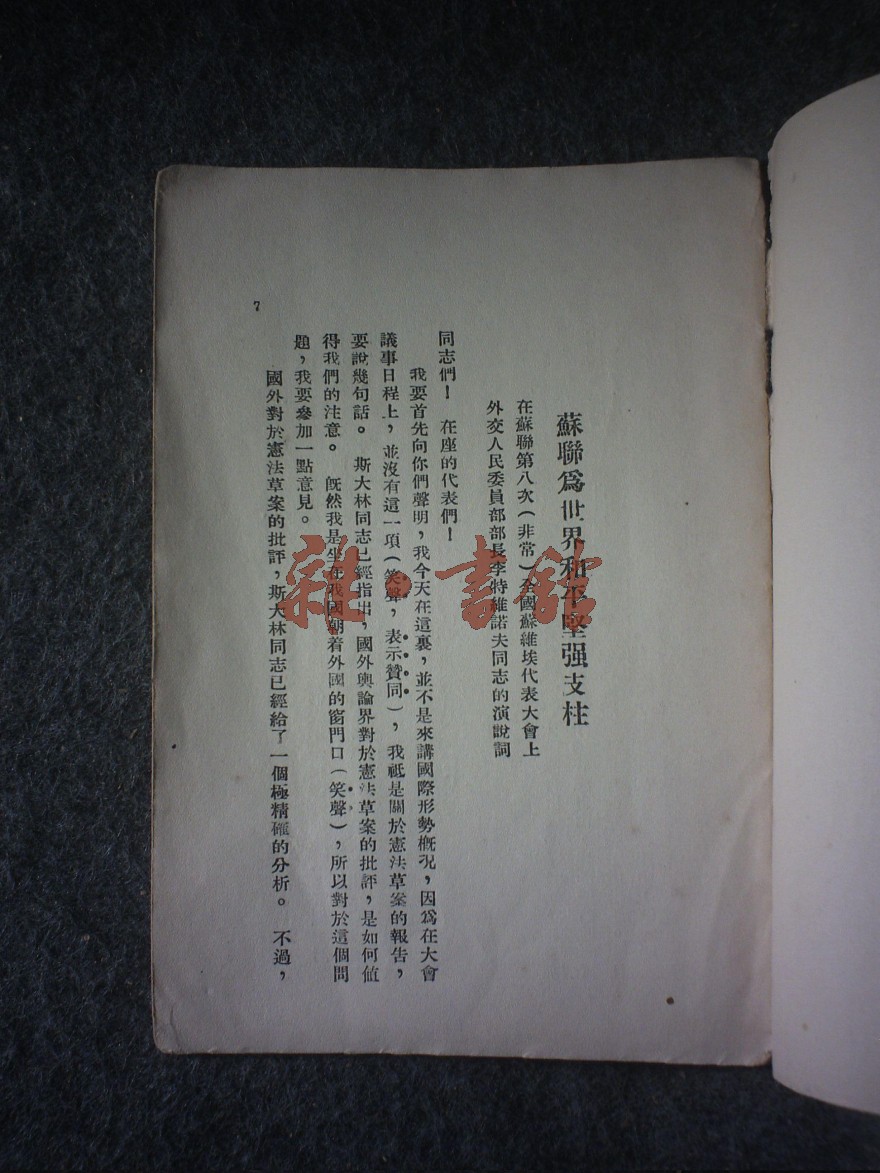 蘇聯爲世界和平堅强支柱
在蘇聯第八次(非常)全國蘇維埃代表大會上
外交人民委員部部長李特維諾夫同志的演說詞
同志們! 在座的代表們!
我要首先向你們聲明,我今天在這裏,並不是來講國際形勢槪况,因爲在大會
議事日程上,並沒有這一項(笑聲,表示贊同),我祗是關於憲法草案的報告,
要說幾句話。 斯大林同志已經指出,國外輿論界對於憲法草案的批評,是如何值
得我們的注意。 旣然我是坐在我國朝着外國的窗門口(笑聲),所以對於這個問
題,我要參加一點意見。
國外對於憲法草案的批評,斯大林同志已經給了一個極精確的分析。 不過,
7
雜·書館